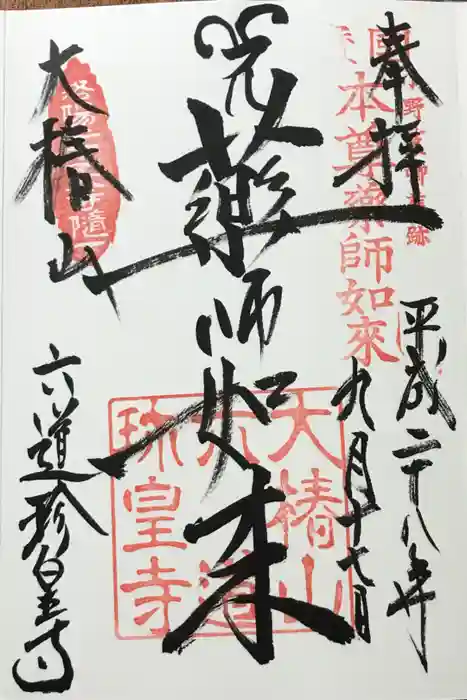 奉拝
平成二十八年
九月十七日
薬師如来
大椿山
六道珍皇寺
本尊薬師如來
大椿山
六道
珍皇寺